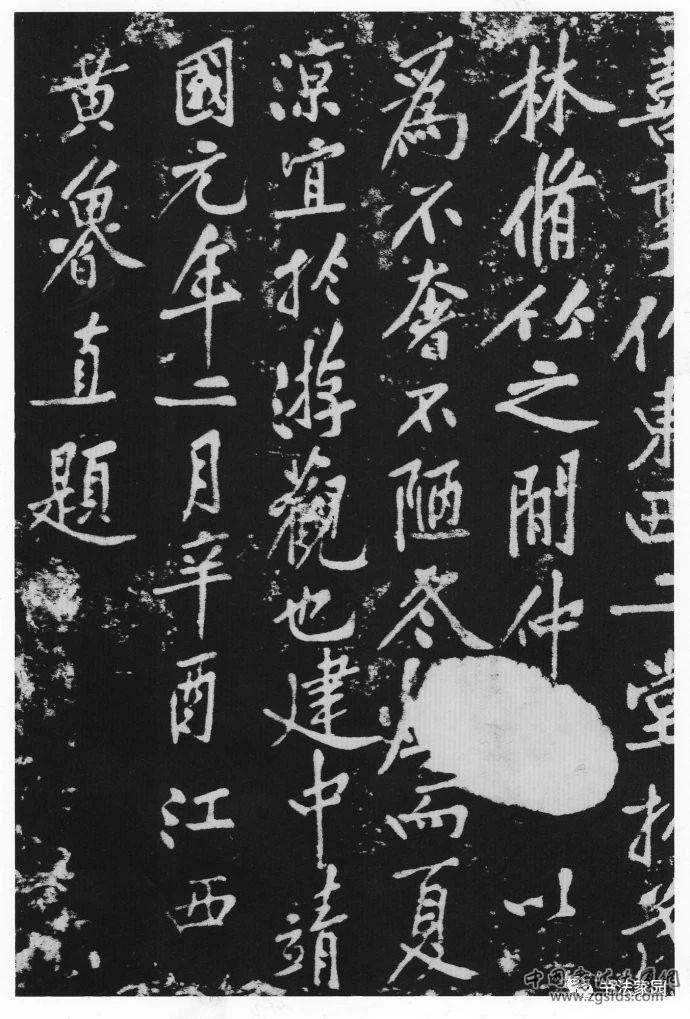 喜事作東西二堂於茂
林脩竹之閒仲 以
為不奢不陋冬 而夏
涼宜於游觀也建中靖
國元年二月辛酉江西
黄魯直題
书法家园
www.zgsfds.com